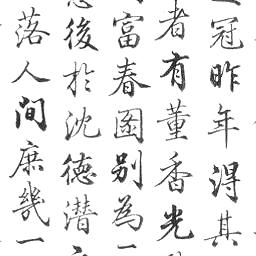 冠昨年得其
者有董香光
富春图别為一
後於沈德潜
落人間庶幾一